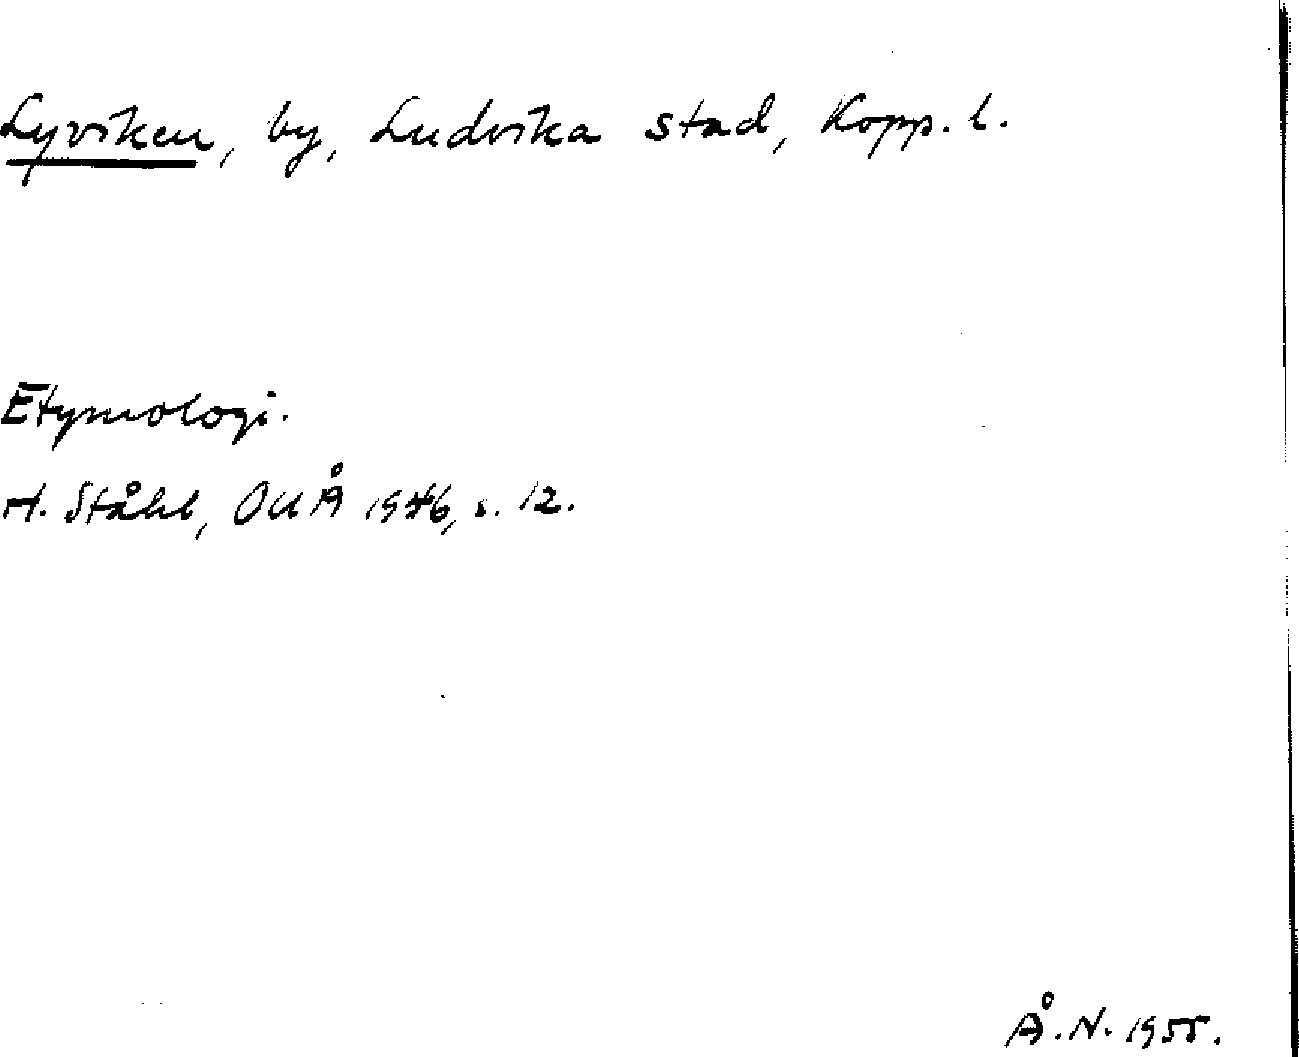 Lyviken, by, Ludvika stad, Kopp. l.
Etymologi.
H. Ståhl, OUÅ 1946, s. 12.
Å. N. 1955.